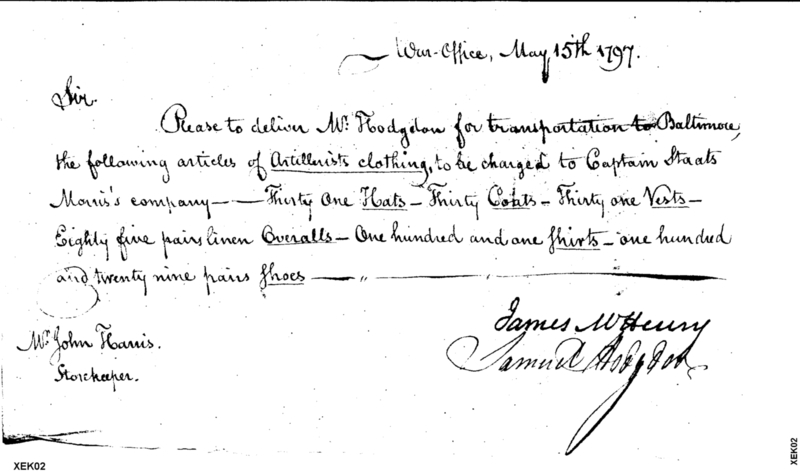 War-Office, May 15th 1797.
Sir.
Please to deliver Mr. Hodgdon for transportation to Baltimore,
the following articles of Artillerists clothing, to be charged to Captain Staats
Morris's company — Thirty One Hats — Thirty Coats — Thirty one Vests —
Eighty five pairs linen Overalls — One hundred and one Shirts — one hundred
and twenty nine pairs Shoes — " —
James McHenry
Samuel Hodgdon
Mr. John Harris.
Storekeeper.
XEK02
XEK02